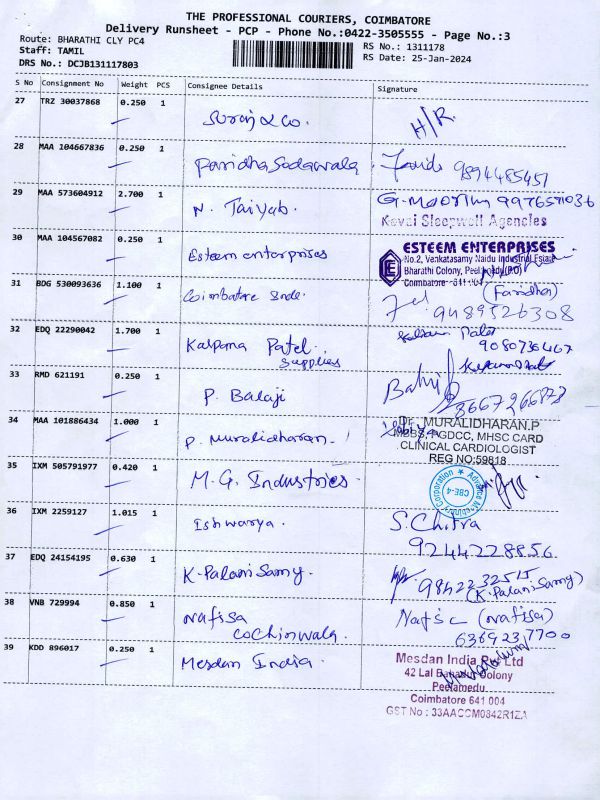 THE PROFESSIONAL COURIERS, COIMBATORE
Delivery Runsheet - PCP - Phone No.:0422-3505555 - Page No.:3
Route: BHARATHI CLY PC4
RS No.: 1311178
Staff: TAMIL
RS Date: 25-Jan-2024
DRS No.: DCJB131117803
S No Consignment No Weight PCS Consignee Details Signature
27 TRZ 30037868 0.250 1
Suraj & Co. H/R.
28 MAA 104667836 0.250 1
Faridha Sadawala. Farida 9894485451
29 MAA 573604912 2.700 1
N. Taiyab. G. Moorthy
Kovai Sleepwell Agencies
30 MAA 104567082 0.250 1
Esteem enterprises
ESTEEM ENTERPRISES
No.2, Venkatasamy Naidu Industrial Estate
Bharathi Colony, Peelamedu(PO)
Coimbatore - 641 004
31 BDG 530093636 1.100 1
Coimbatore Inde.
(Faridha)
9489526308
32 EDQ 22290042 1.700 1
Kalpana Patel.
Supplies
Patel
9080736467
33 RMD 621191 0.250 1
P. Balaji
8667266873
34 MAA 101886434 1.000 1
P. Muralidharan.
Dr. MURALIDHARAN.P
MBBS, PGDCC, MHSC CARD
CLINICAL CARDIOLOGIST
REG NO:59818
35 IXM 505791977 0.420 1
M.G. Industries.
CBE-4
36 IXM 2259127 1.015 1
Ishwarya.
S. Chitra
9244228856.
37 EDQ 24154195 0.630 1
K. Palani Samy.
9842232515
(K. Palani Samy)
38 VNB 729994 0.850 1
Nafisa
Cochinwala.
(Nafisa)
6369237700
39 KDD 896017 0.250 1
Mesdan India.
Mesdan India Pvt Ltd
42 Lal Bahadur Colony
Peelamedu
Coimbatore 641 004
GST No : 33AACCM0842R1ZA